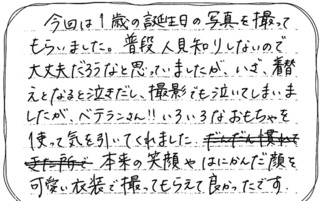 今回は1歳の誕生日の写真を撮って
もらいました。普段人見知りしないので
大丈夫だろうなと思っていましたが、いざ、着替
えとなると泣きだし、撮影でも泣いてしまいま
したが、ベテランさん!!いろいろなおもちゃを
使って気を引いてくれました。だんだん慣れて
きた所で 本来の笑顔やはにかんだ顔を
可愛い衣装で撮ってもらえて良かったです。